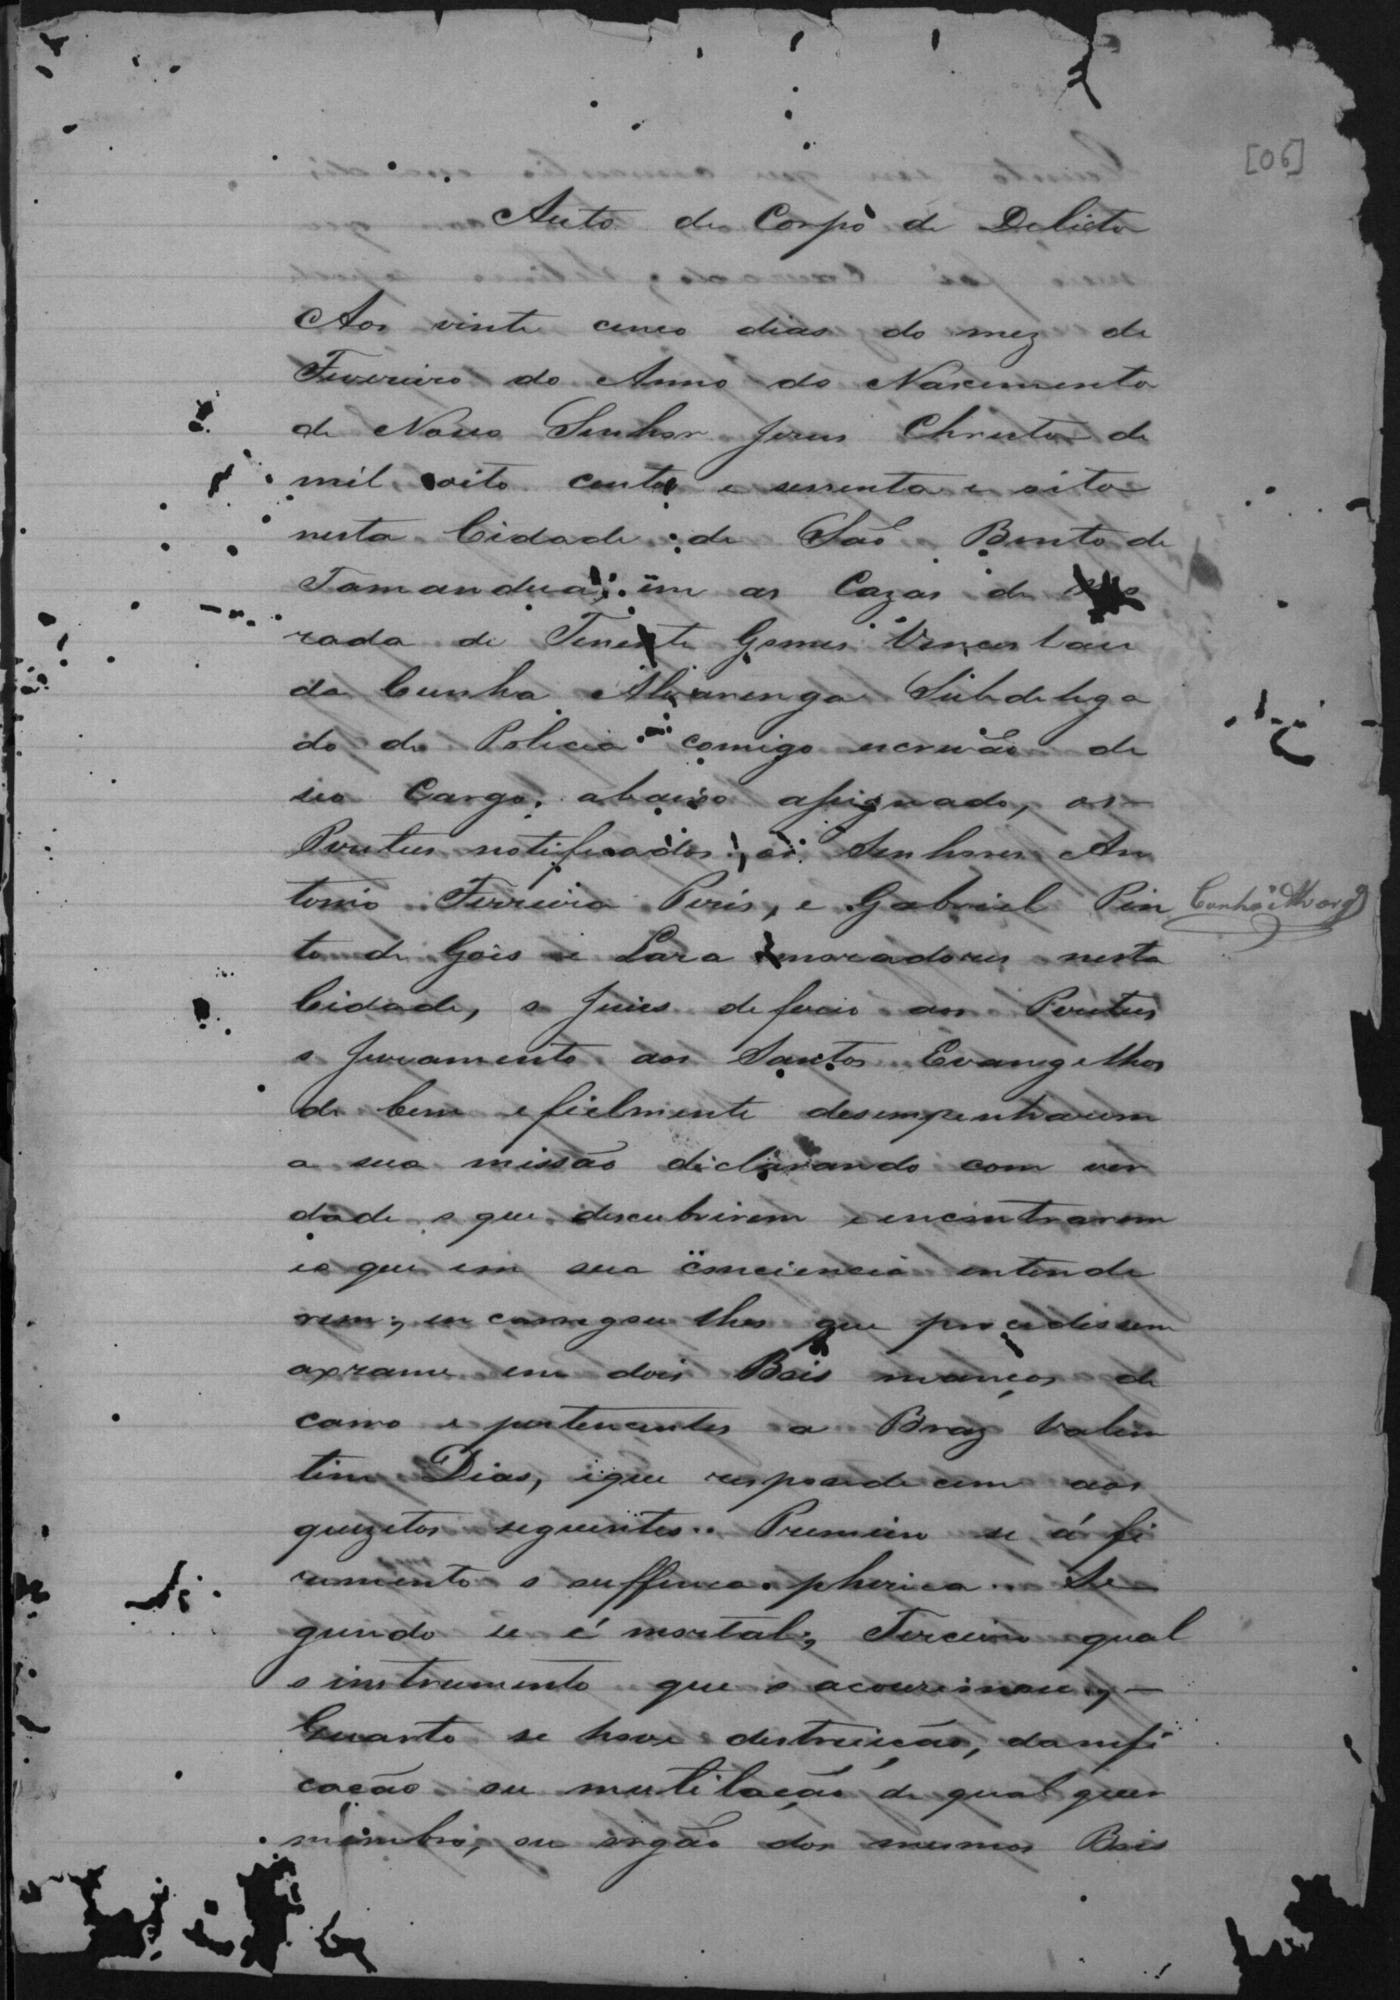 [06]
Auto de Corpo de Delicto
Aos vinte cinco dias do mez de
Fevereiro do Anno do Nascimento
de Nosso Senhor Jesus Christo de
mil oito centos e sessenta e oito
nesta Cidade de São Bento de
Tamandua, em as Cazas de
rada de Tenente Gomes Venceslau
da Cunha Alvarenga Subdelega
do de Policia comigo escrivão de
seo Cargo, abaixo assignado, os
Peritus notificados, os Senhores An
tonio Ferreira Peris, e Gabriel Pin
to de Góes e Lara moradores nesta
Cidade, o Juies deferio aos Peritus
o Juramento aos Santos Evangelhos
de bem e fielmente desempenharem
a sua missão diclarando com ver
dade o que descubrirem e encontrarem
eo que em sua consciencia entende
rem; en carregou lhes que procedissem
axzame em dois Bois manços de
carro e pertencentes a Braz Valen
tim Dias, eque respondecem aos
quezitos seguintes.. Premeiro se á fi
rimento o
gundo se é mortal; Terceiro qual
o instrumento que o acouzionou, -
Quarto se hove destruição, danifi
cação ou mutilação de qual quer
membro, ou orgão dos mesmos Bois
Cunha e Alvarg